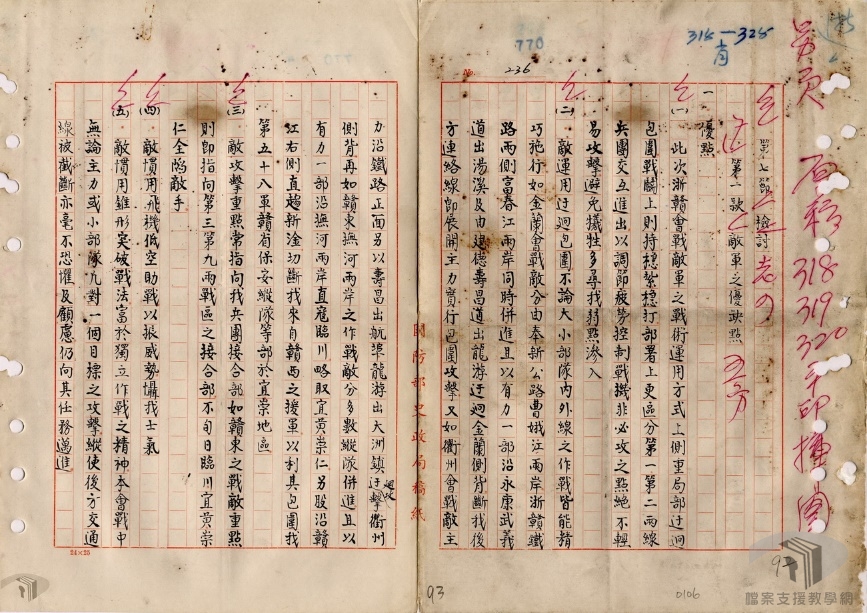 另頁
原稿
318
319
320
平印插圖
315－325
770
236
No.
第七節　檢討
第一款　敵軍之優缺點
一　優點
㈠　此次浙贛會戰敵軍之戰術運用方式上側重局部迂迴
包圍戰鬪上則持穩紮穩打部署上更區分第一第二兩線
兵團交互進出以調節疲勞控制戰機非必攻之點絕不輕
易攻擊避免犧牲多尋找弱點滲入
㈡　敵運用迂迴包圍不論大小部隊內外線之作戰皆能精
巧施行如金蘭會戰敵分由奉新公路曹娥江兩岸浙贛鐵
路兩側富春江兩岸同時併進且以有力一部沿永康武義
道出湯溪及由建德壽昌道出龍游迂迴金蘭側背斷找後
方連絡線即展開主力實行包圍攻擊又如衢州會戰敵主
力沿鐵路正面另以壽昌出杭埠龍游出大洲鎮迂擊衢州
側背再如贛東撫河兩岸之作戰敵分多數縱隊併進且以
有力一部沿撫河兩岸直竄臨川略取宜黃崇仁另股沿贛
江右側直趨新淦切斷找來自贛西之援軍以利其包圍找
第五十八軍贛省保安縱隊等部於宜崇地區
㈢　敵攻擊重點常指向找兵團接合部如贛東之戰敵重點
則即指向第三第九兩戰區之接合部不旬日臨川宜黃崇
仁全陷敵手
㈣　敵慣用飛機低空助戰以振威勢懾我士氣
㈤　敵慣用錐形突破戰法富於獨立作戰之精神本會戰中
無論主力或小部隊凡對一個目標之攻擊縱使後方交通
線被截斷亦毫不恐懼及顧慮仍向其任務邁進
國防部史政局稿紙
24×25
93
92
0106
檔案支援教學網